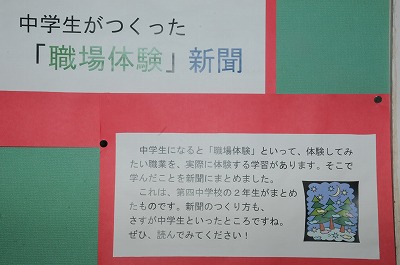 中学生がつくった
「職場体験」新聞
中学生になると「職場体験」といって、体験してみ
たい職業を、実際に体験する学習があります。そこで
学んだことを新聞にまとめました。
これは、第四中学校の２年生がまとめ
たものです。新聞のつくり方も、
さすが中学生といったところですね。
ぜひ、読んでみてください！